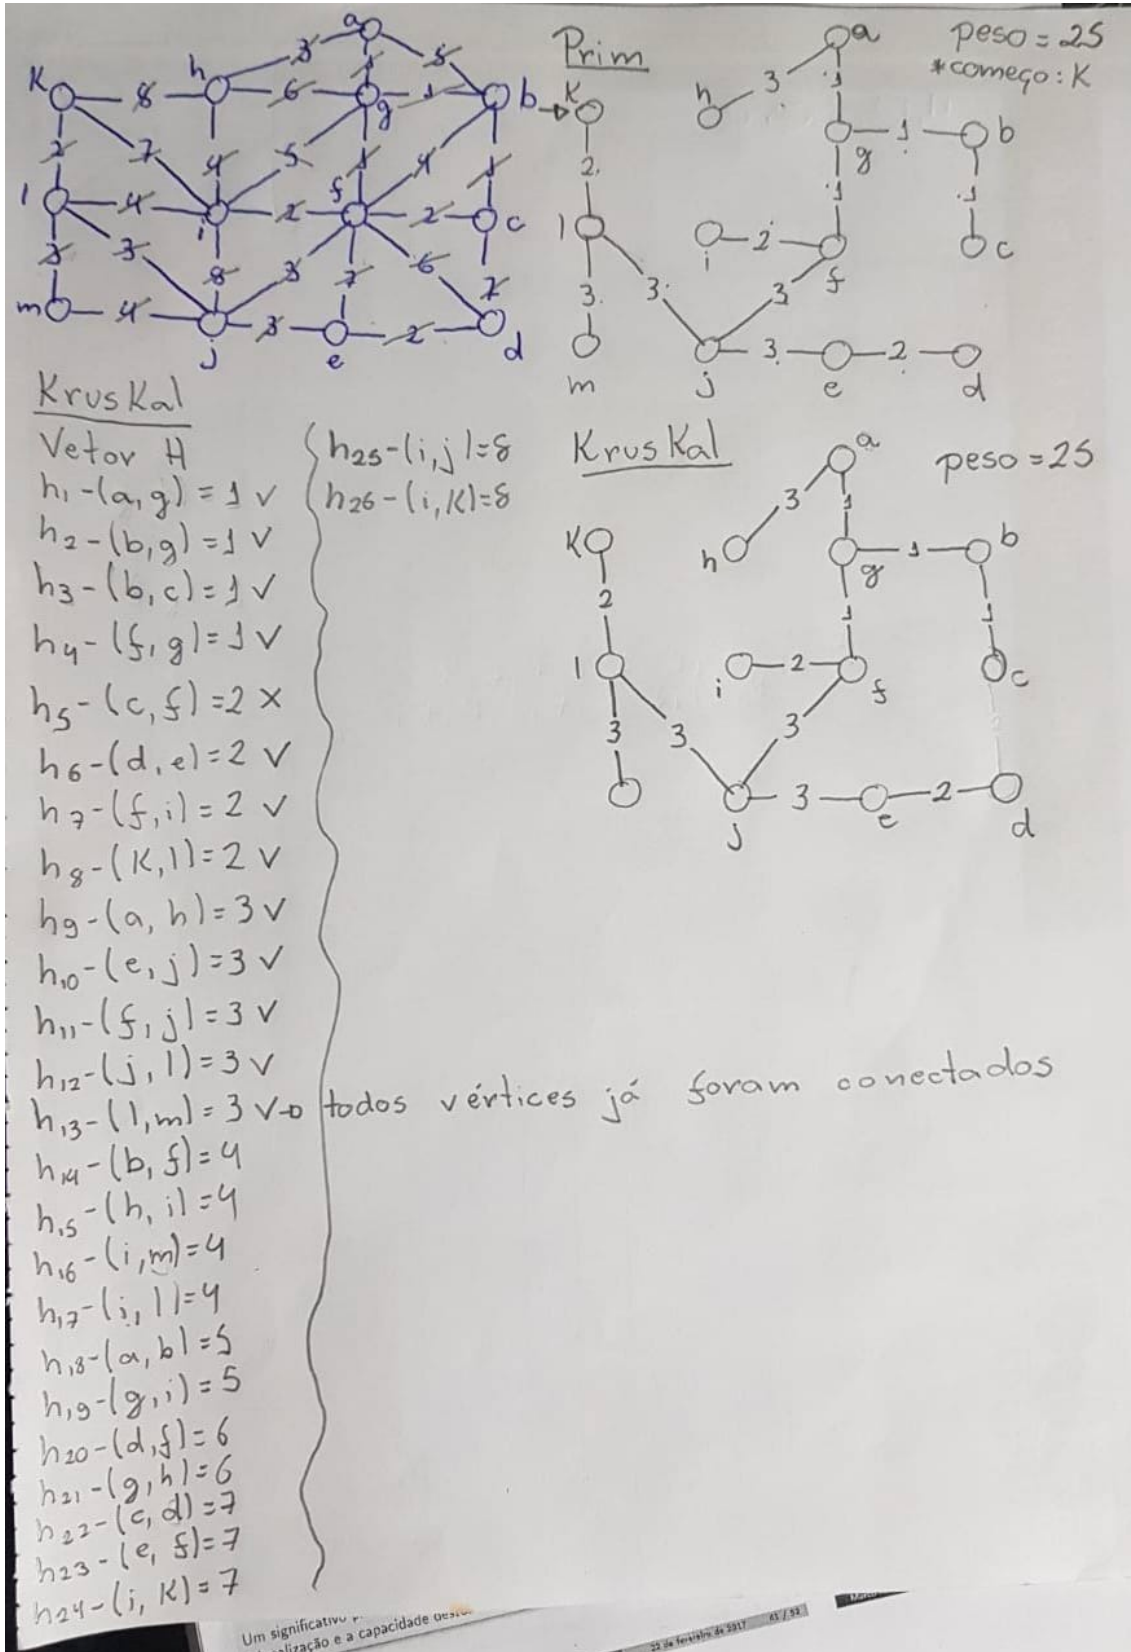 a
3 1 5
K 8 h 6 g 1 b
2 7 4 5 1 4 1
l 4 i 2 f 2 c
3 3 8 3 7 6 7
m 4 j 3 e 2 d
Prim
peso = 25
*começo: K
a
h 3 1
K
g 1 b
2 1 1
l i 2 f c
3 3 3
m j 3 e 2 d
Kruskal
Vetor H
h1-(a,g)=1 v
h2-(b,g)=1 v
h3-(b,c)=1 v
h4-(f,g)=1 v
h5-(c,f)=2 x
h6-(d,e)=2 v
h7-(f,i)=2 v
h8-(K,l)=2 v
h9-(a,h)=3 v
h10-(e,j)=3 v
h11-(f,j)=3 v
h12-(j,l)=3 v
h13-(l,m)=3 v→ todos vértices já foram conectados
h14-(b,f)=4
h15-(h,i)=4
h16-(i,m)=4
h17-(i,l)=4
h18-(a,b)=5
h19-(g,i)=5
h20-(d,f)=6
h21-(g,h)=6
h22-(c,d)=7
h23-(e,f)=7
h24-(i,K)=7
h25-(i,j)=8
h26-(i,K)=8
Kruskal
peso = 25
a
3 1
K h g 1 b
2 1 1
l i 2 f c
3 3 3
j 3 e 2 d
Um significativo
alização e a capacidade
22 de fevereiro de 2017 61 / 92